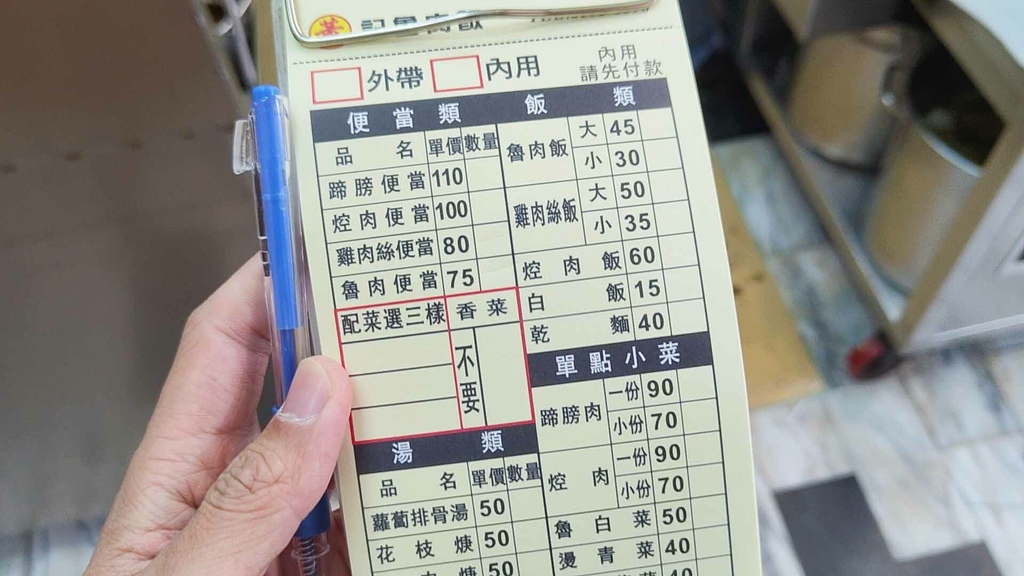 外帶 內用
內用
請先付款
便當類
品名 單價 數量
蹄膀便當 110
焢肉便當 100
雞肉絲便當 80
魯肉便當 75
配菜選三樣 香菜
不要
湯類
品名 單價 數量
蘿蔔排骨湯 50
花枝焿 50
焿 50
飯類
魯肉飯 大 45
小 30
雞肉絲飯 大 50
小 35
焢肉飯 60
白飯 15
乾麵 40
單點小菜
蹄膀肉 一份 90
小份 70
焢肉 一份 90
小份 70
魯白菜 50
燙青菜 40
40